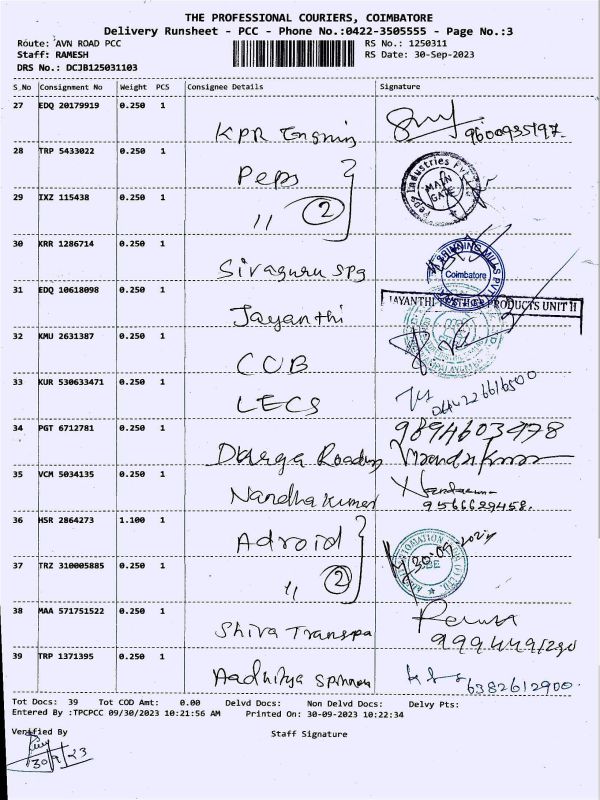 THE PROFESSIONAL COURIERS, COIMBATORE
Delivery Runsheet - PCC - Phone No.:0422-3505555 - Page No.:3
Route: AVN ROAD PCC
RS No.: 1250311
Staff: RAMESH
RS Date: 30-Sep-2023
DRS No.: DCJB125031103
S_No Consignment No Weight PCS Consignee Details Signature
27 EDQ 20179919 0.250 1
KPR 9600935197.
28 TRP 5433022 0.250 1
Peps
Peps Industries Pvt
MAIN GATE
29 IXZ 115438 0.250 1
,, 2
30 KRR 1286714 0.250 1
Sivaguru spg
Coimbatore
31 EDQ 10618098 0.250 1
Jayanthi
JAYANTHI PRODUCTS UNIT II
32 KMU 2631387 0.250 1
CUB
33 KUR 530633471 0.250 1
LECS
34 PGT 6712781 0.250 1
9894603478
Durga
35 VCM 5034135 0.250 1
Nandha Kumar
9566629458.
36 HSR 2864273 1.100 1
Adroid
30-09-2023
37 TRZ 310005885 0.250 1
,, 2
38 MAA 571751522 0.250 1
Shiva Transpo
39 TRP 1371395 0.250 1
Aadhitya
6382612900.
Tot Docs: 39 Tot COD Amt: 0.00 Delvd Docs: Non Delvd Docs: Delvy Pts:
Entered By :TPCPCC 09/30/2023 10:21:56 AM Printed On: 30-09-2023 10:22:34
Verified By
Staff Signature
30/9/23